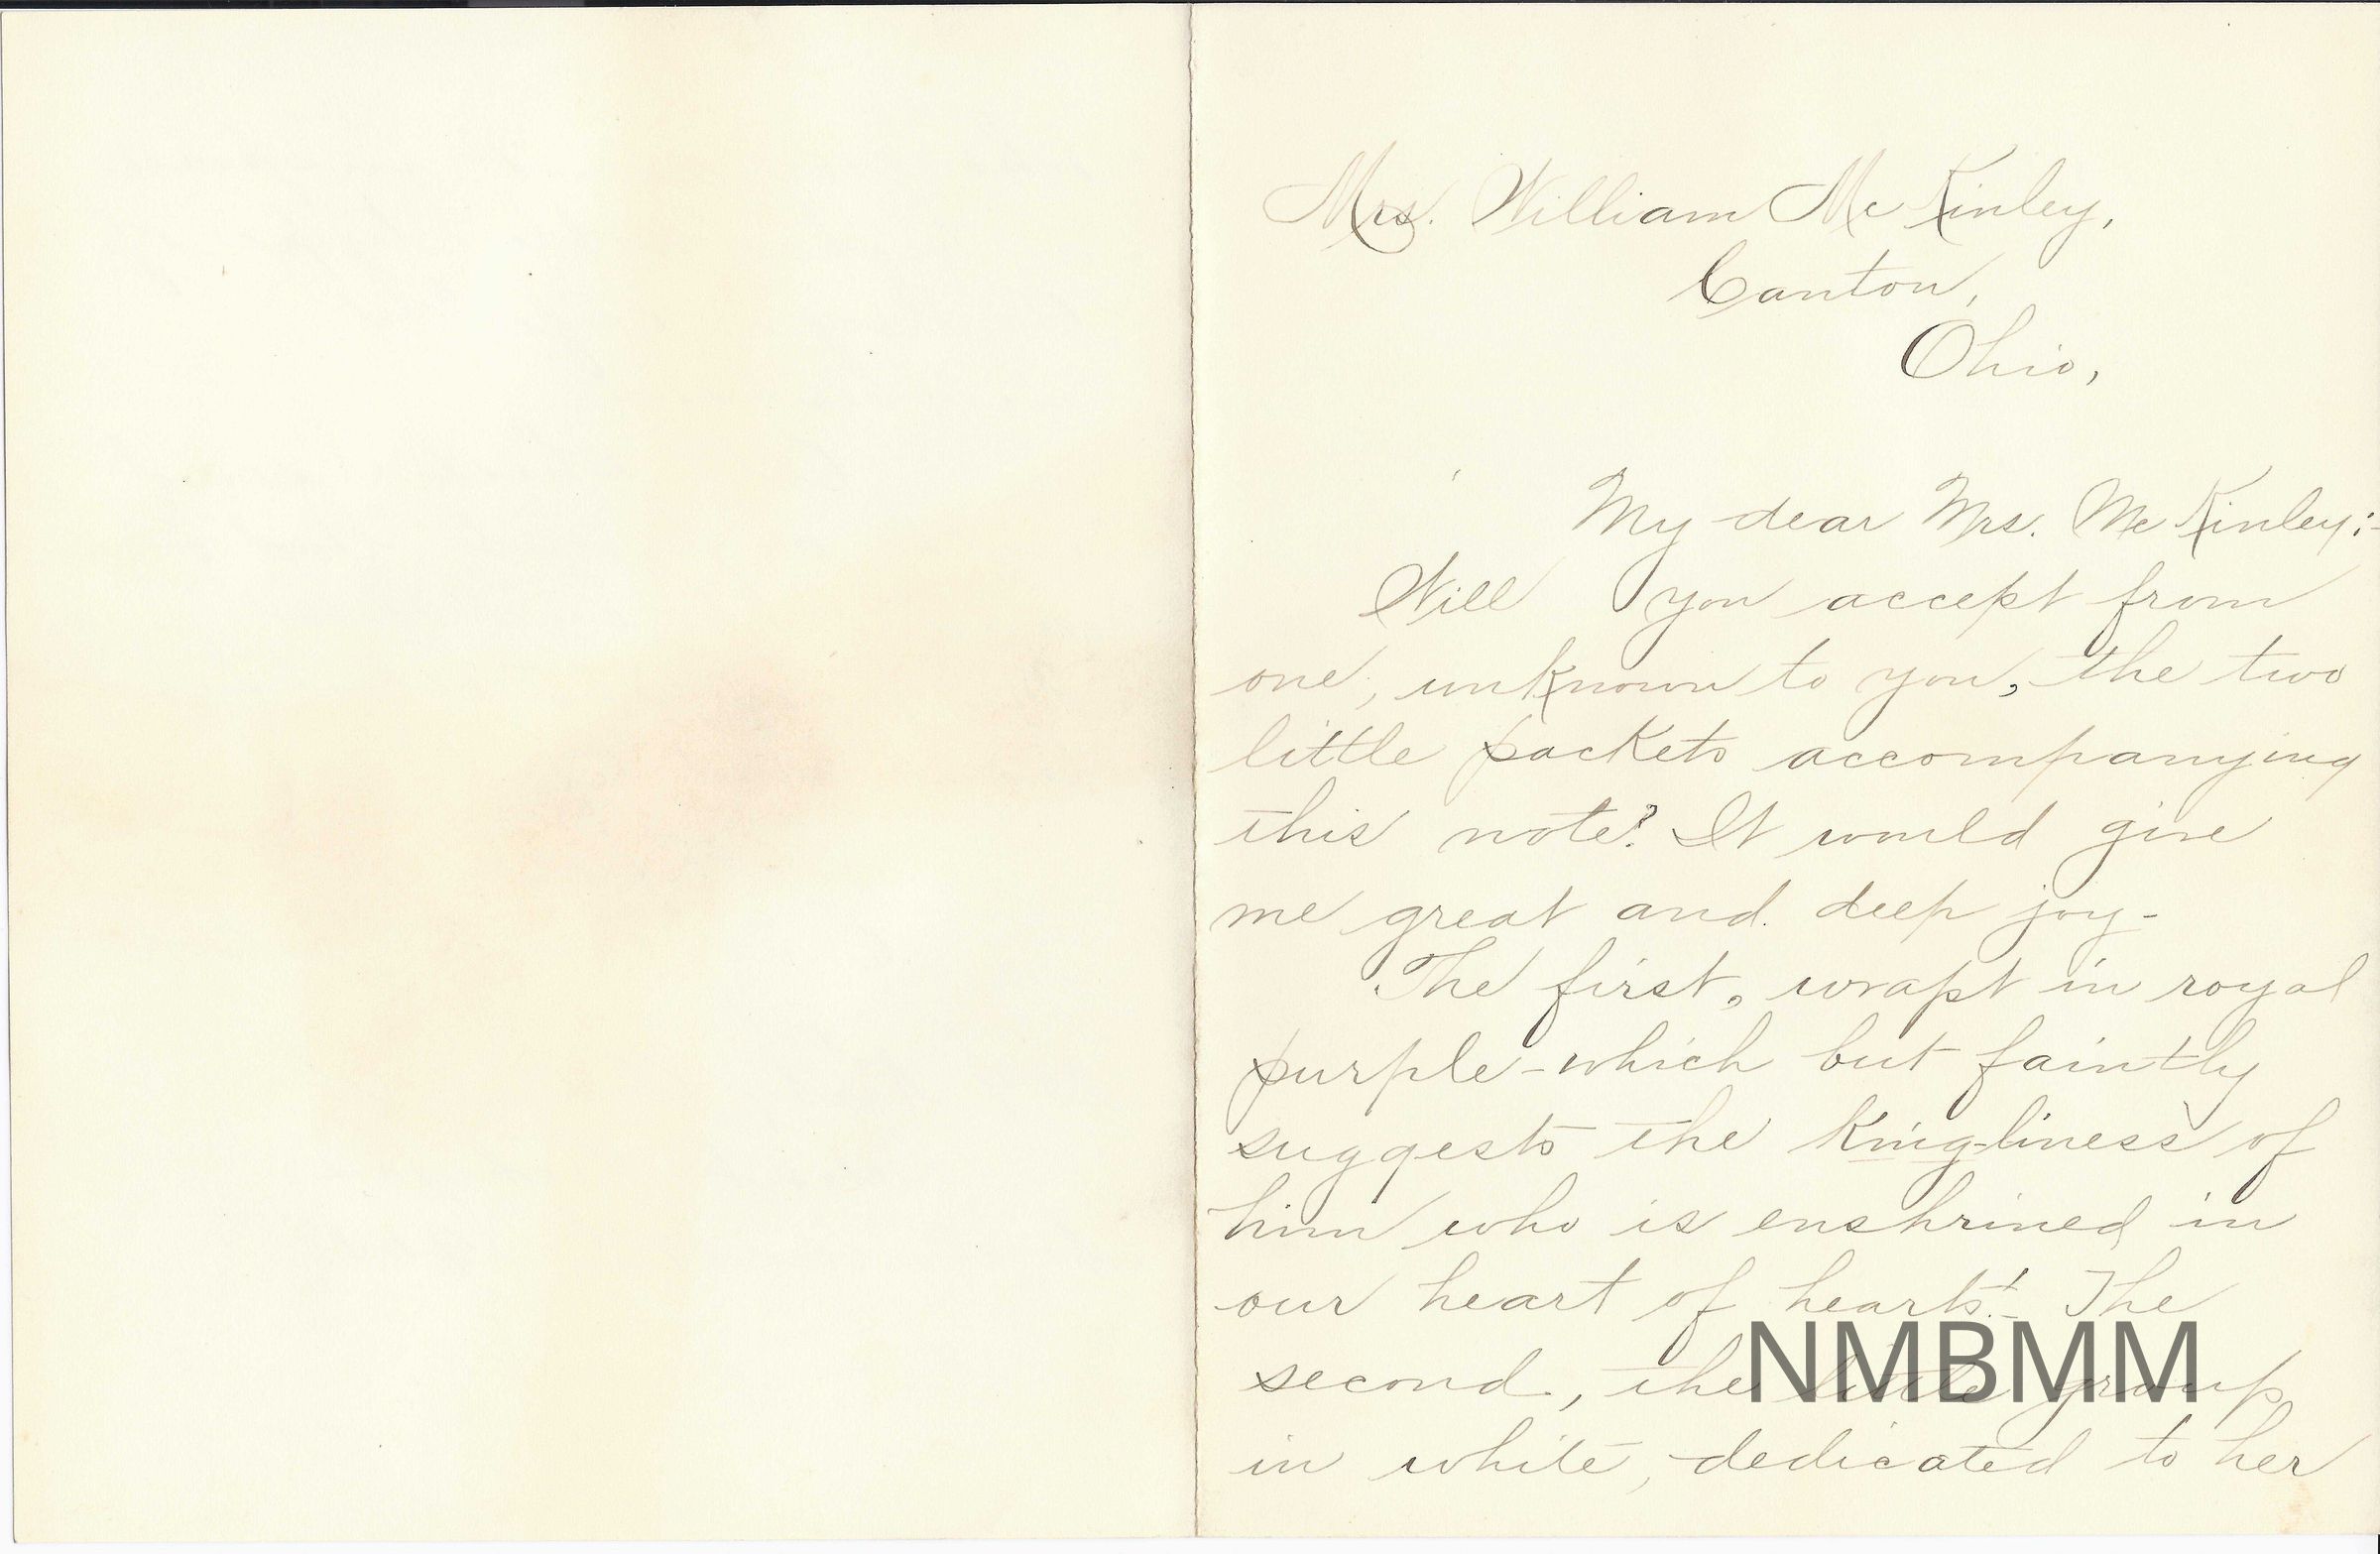 Mrs. William McKinley,
Canton,
Ohio,
My dear Mrs. McKinley:-
Will you accept from
one, unknown to you, the two
little packets accompanying
this note? It would give
me great and deep joy-
The first, wrapt in royal
purple-which but faintly
suggests the King-liness of
him who is enshrined in
our heart of hearts!- The
second, the little group
in white, dedicated to her
NMBMM